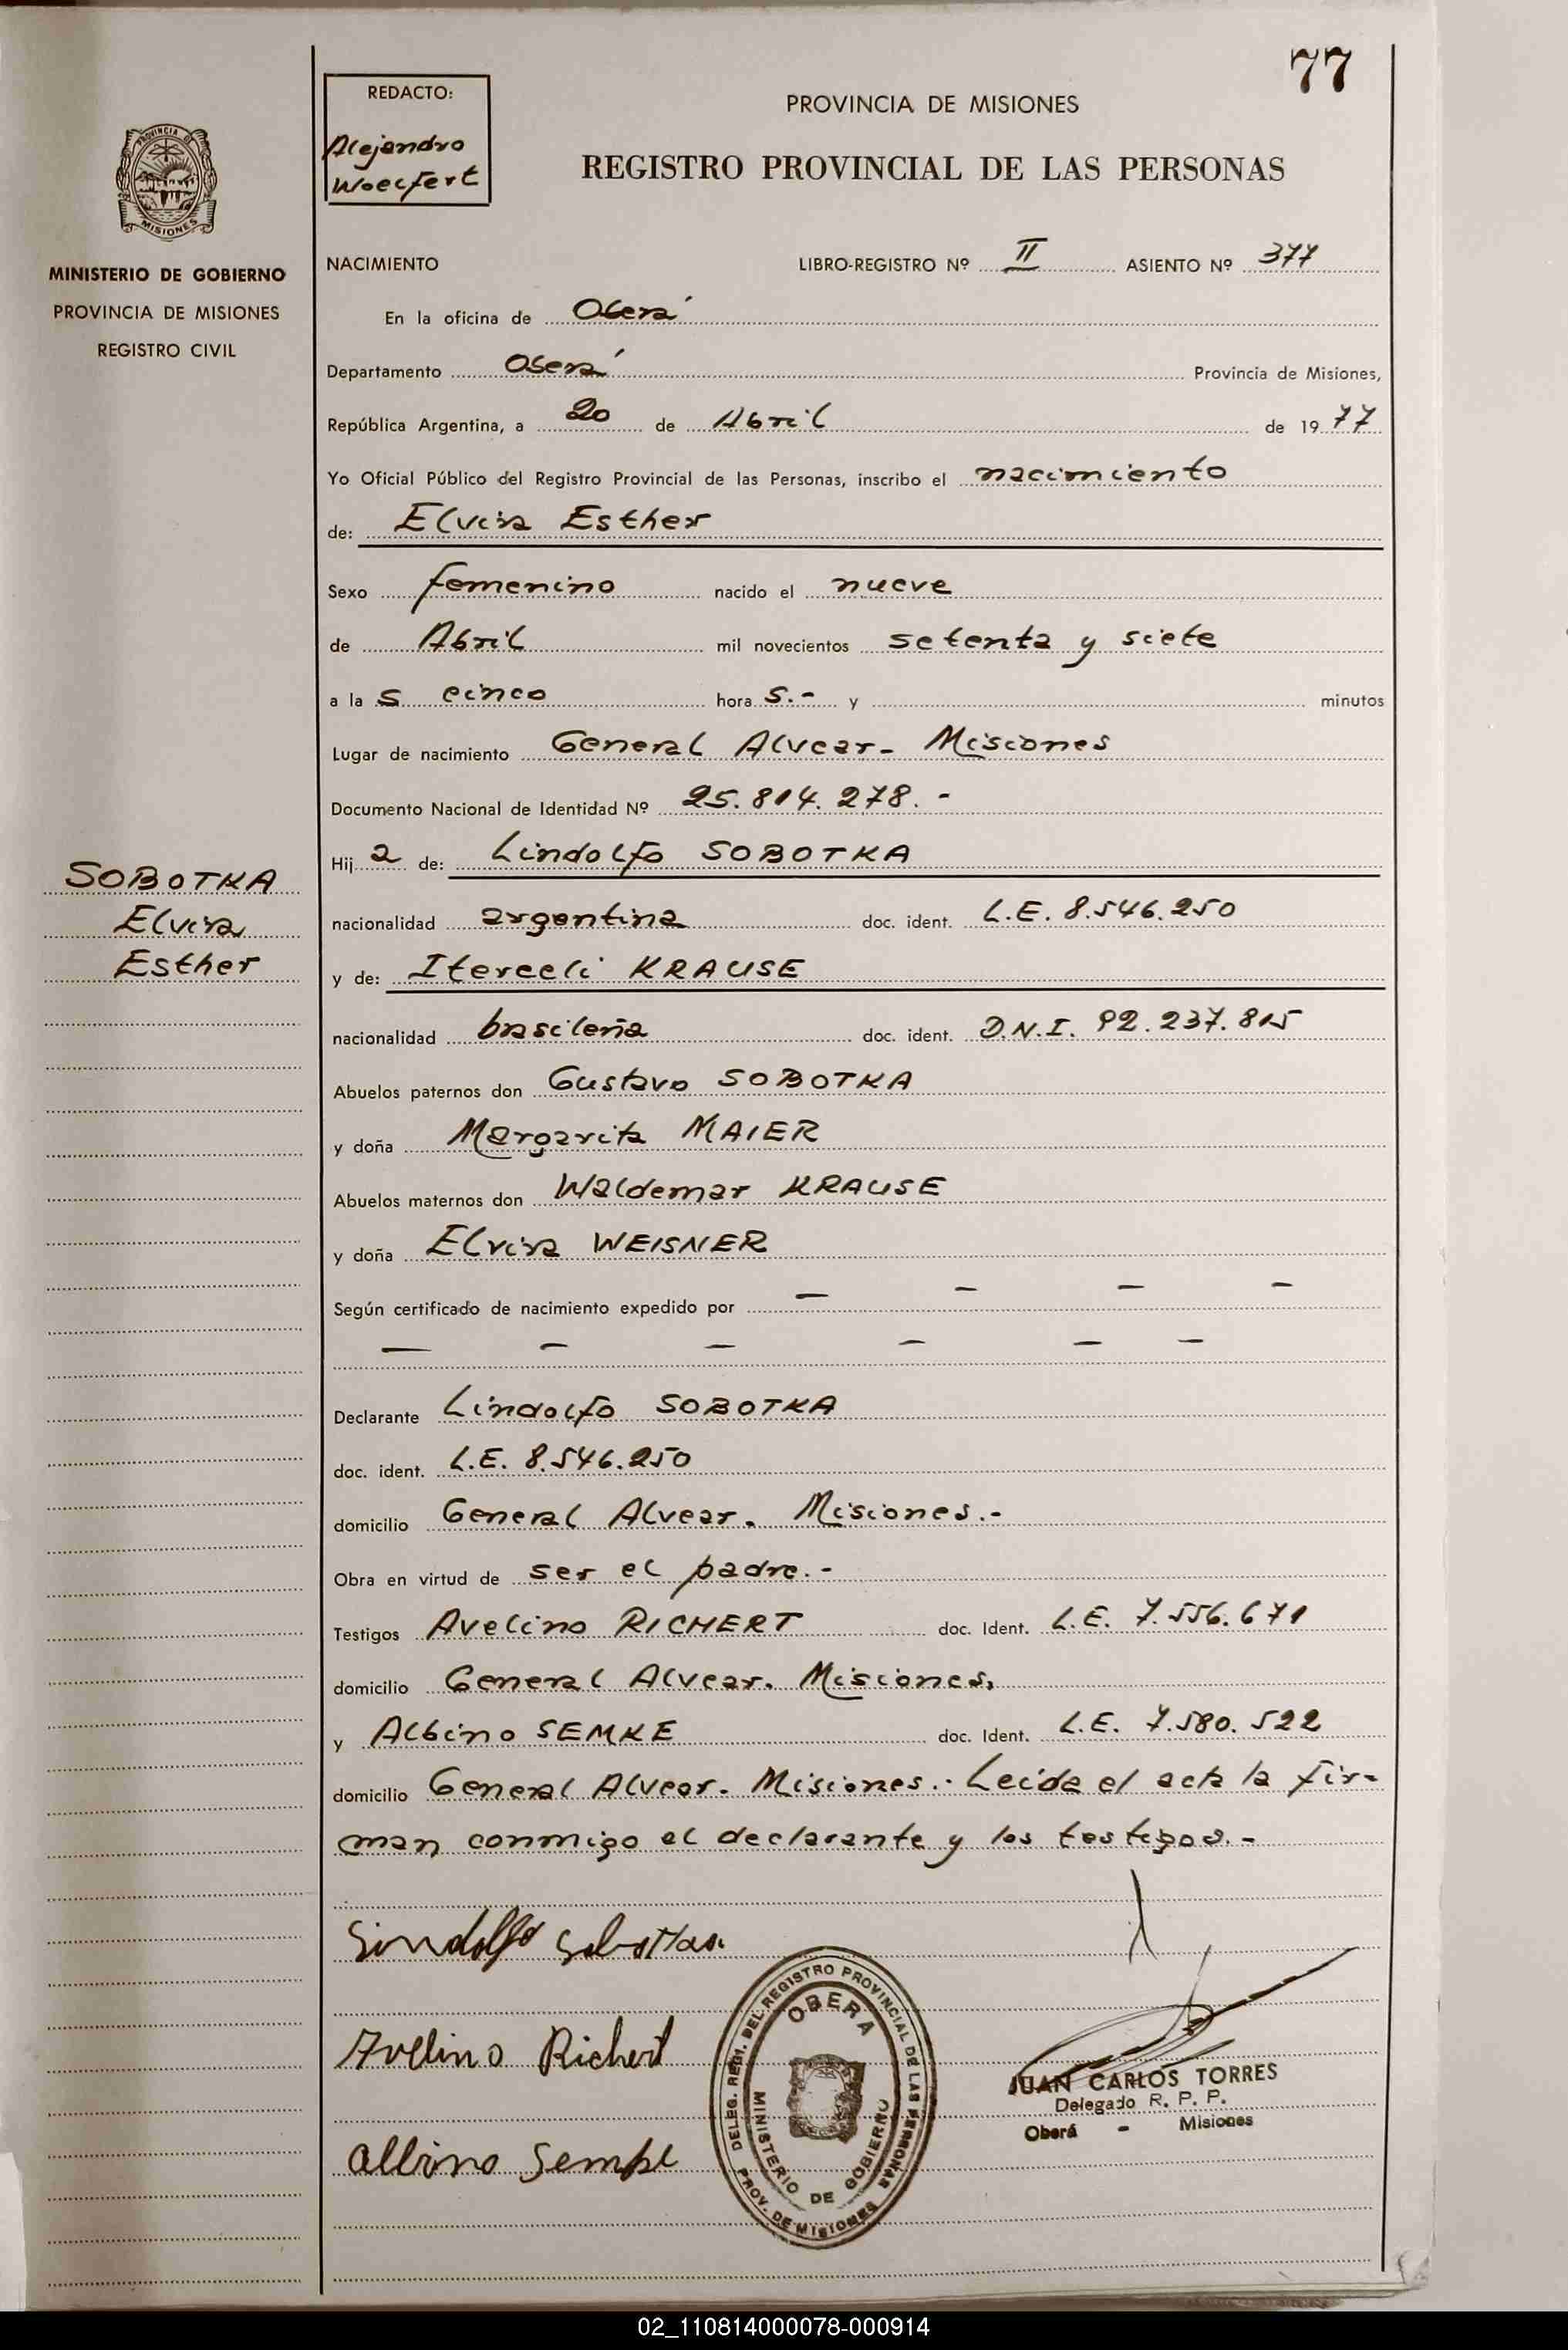 77
REDACTO:
Alejandro
Woelfert
PROVINCIA DE MISIONES
REGISTRO PROVINCIAL DE LAS PERSONAS
PROVINCIA DE
MISIONES
MINISTERIO DE GOBIERNO
PROVINCIA DE MISIONES
REGISTRO CIVIL
NACIMIENTO LIBRO-REGISTRO Nº II ASIENTO Nº 377
En la oficina de Oberá
Departamento Oberá Provincia de Misiones,
República Argentina, a 20 de Abril de 1977
Yo Oficial Público del Registro Provincial de las Personas, inscribo el nacimiento
de: Elvira Esther
Sexo femenino nacido el nueve
de Abril mil novecientos setenta y siete
a la s cinco hora s.- y minutos
Lugar de nacimiento General Alvear- Misiones
Documento Nacional de Identidad Nº 25.814.278.-
Hij a de: Lindolfo SOBOTKA
SOBOTKA
Elvira
Esther
nacionalidad argentina doc. ident. L.E. 8.546.250
y de: Iterceli KRAUSE
nacionalidad brasileña doc. ident. D.N.I. 92.237.815
Abuelos paternos don Gustavo SOBOTKA
y doña Margarita MAIER
Abuelos maternos don Waldemar KRAUSE
y doña Elvira WEISNER
Según certificado de nacimiento expedido por — — — —
— — — — — —
Declarante Lindolfo SOBOTKA
doc. ident. L.E. 8.546.250
domicilio General Alvear. Misiones.-
Obra en virtud de ser el padre.-
Testigos Avelino RICHERT doc. Ident. L.E. 7.556.671
domicilio General Alvear. Misiones.
y Albino SEMKE doc. Ident. L.E. 7.580.522
domicilio General Alvear. Misiones.- Leída el acta la fir-
man conmigo el declarante y los testigos.-
Lindolfo Sobottka
Avelino Richert
Albino Semke
DELEG. REGI. DEL REGISTRO PROVINCIAL DE LAS PERSONAS
OBERA
MINISTERIO DE GOBIERNO
PROV. DE MISIONES
JUAN CARLOS TORRES
Delegado R. P. P.
Oberá - Misiones
02_110814000078-000914